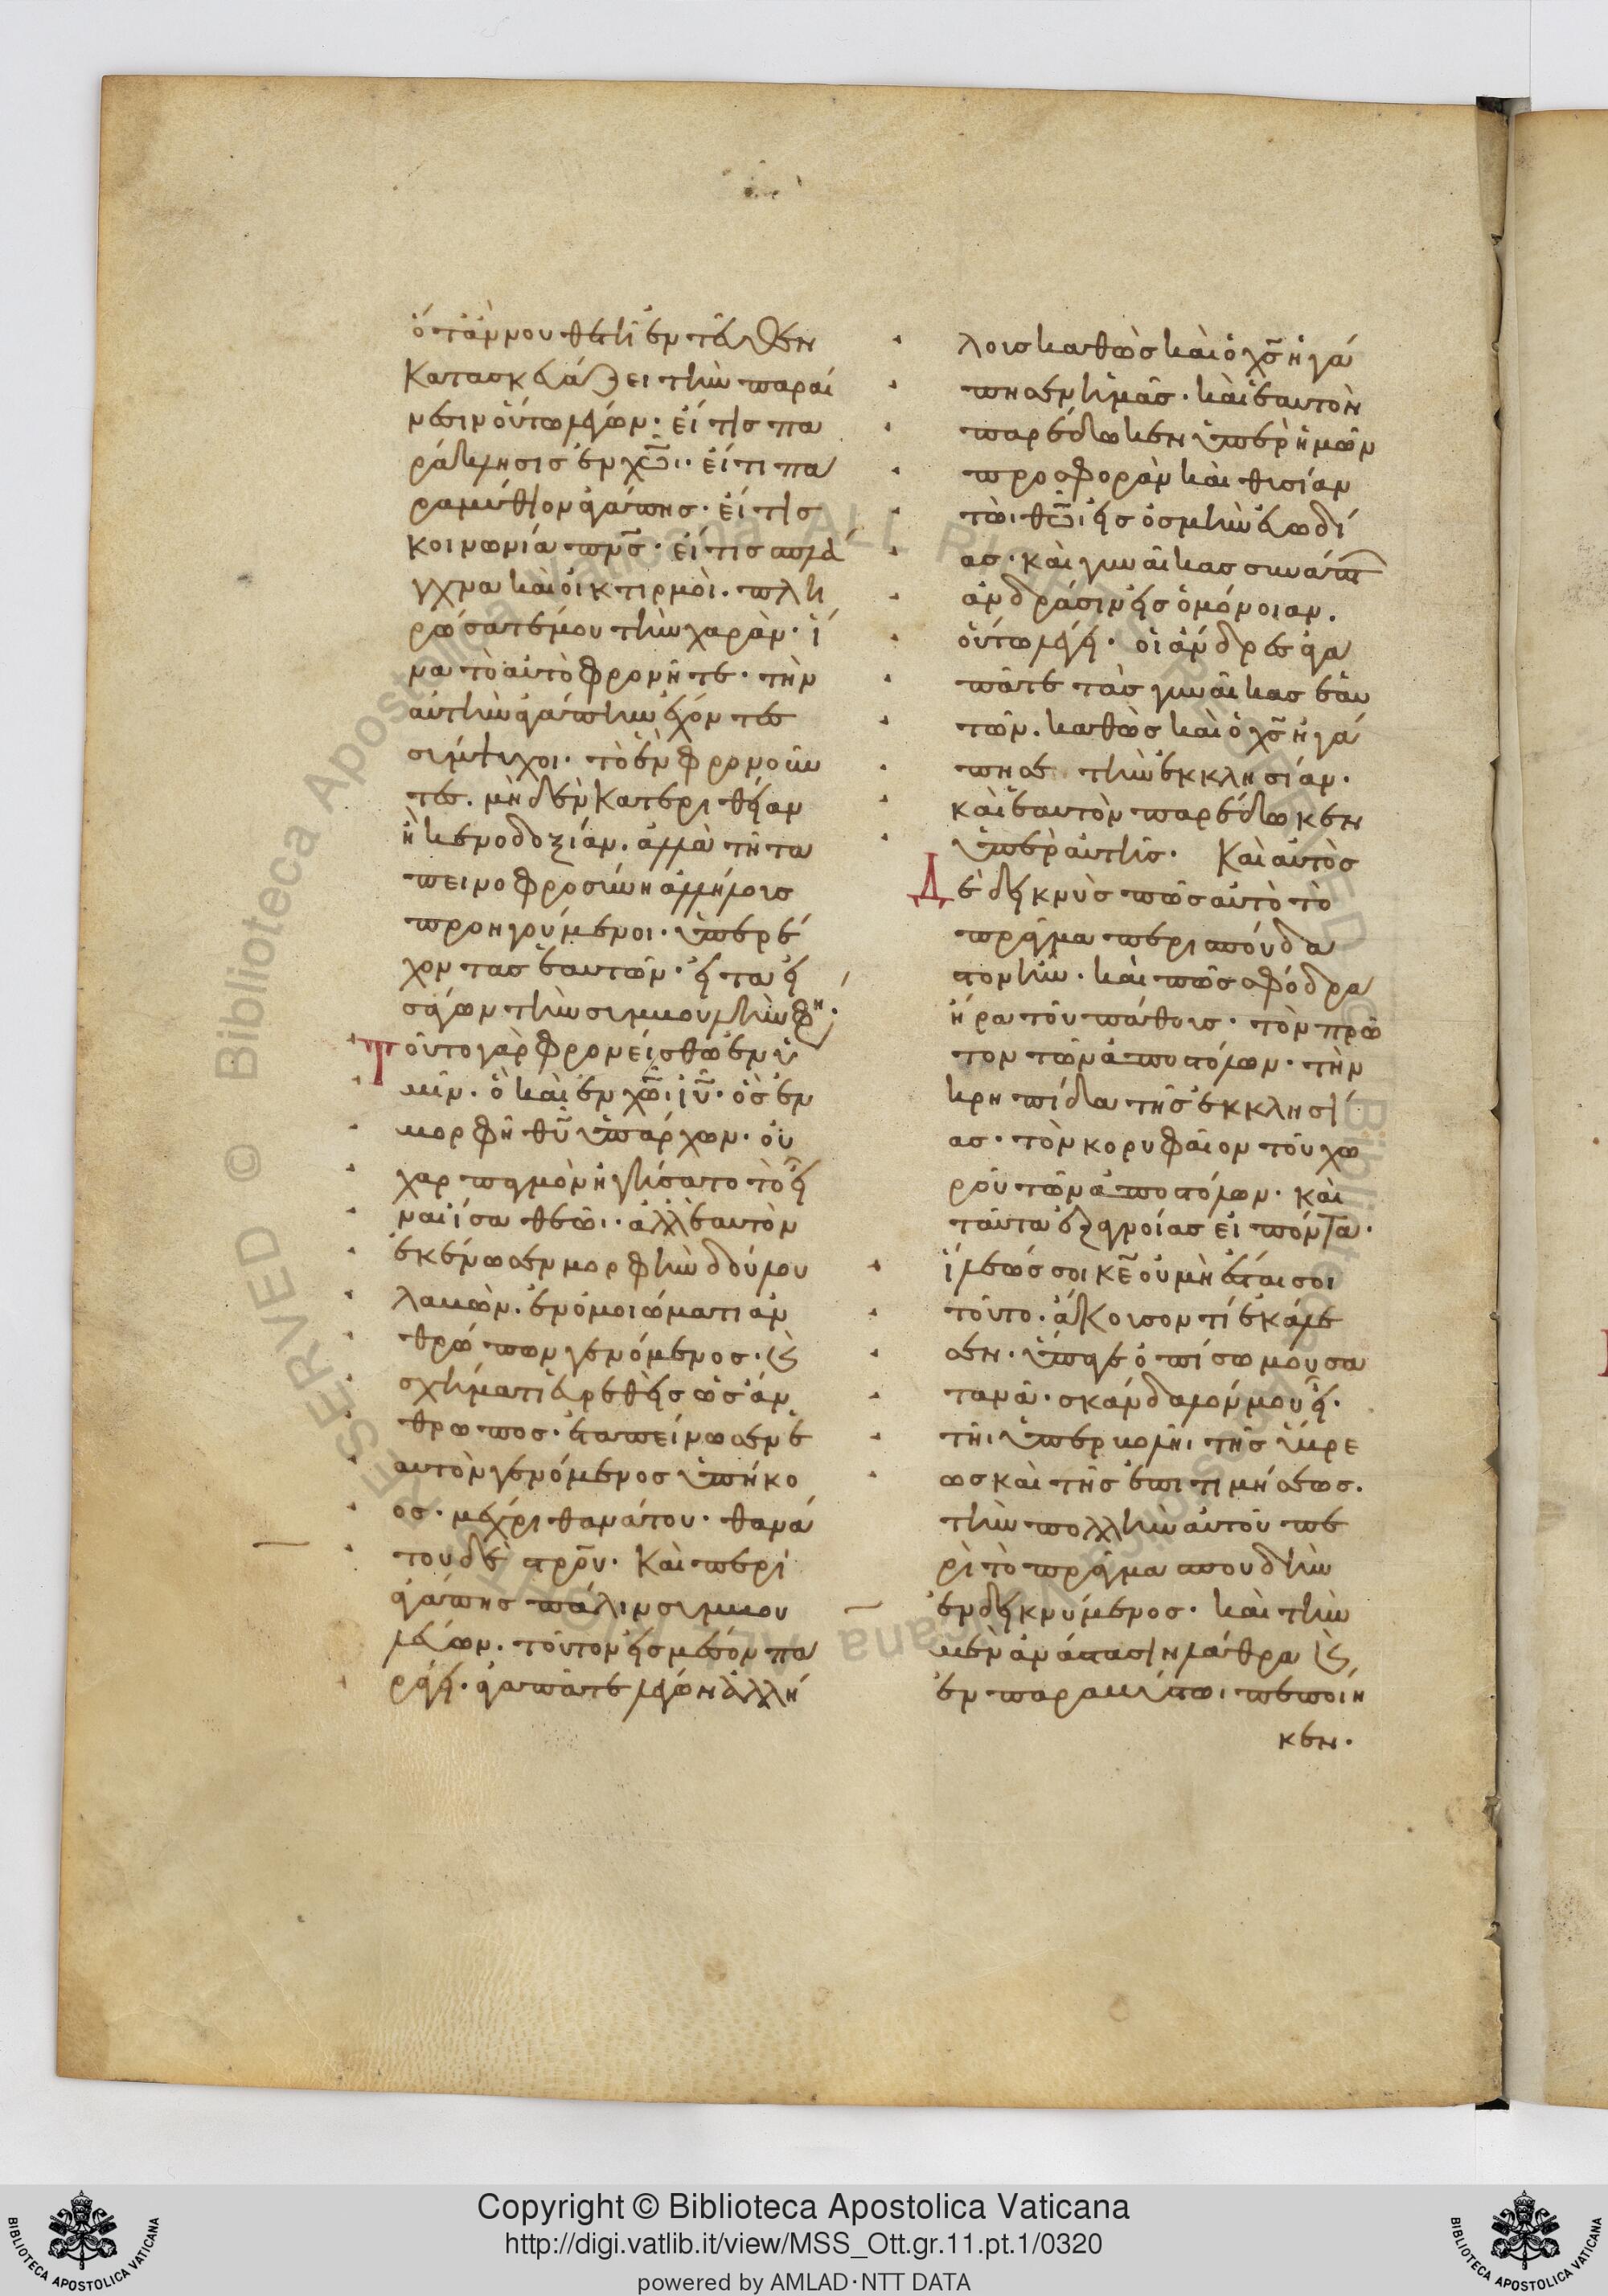 ὅταν νουθετῆ ἐντεῦθεν
κατασκευάζει τὴν παραί
νεσιν οὕτω λέγων· εἴ τις πα
ράκλησις ἐν χῶι· εἴ τι πα
ραμύθιον ἀγάπης· εἴ τις
κοινωνία πνς· εἴ τις σπλά
γχνα καὶ οἰκτιρμοὶ· πλη
ρώσατέ μου τὴν χαρὰν· ἵ
να τὸ αὐτὸ φρονῆτε· τὴν
αὐτὴν ἀγάπην ἔχοντες
σύμψυχοι· τὸ ἓν φρονοῦν
τες. μηδὲν κατ ἐριθείαν
ἢ κενοδοξίαν. ἀλλὰ τῆ τα
πεινοφροσύνη ἀλλήλους
προηγούμενοι· ὑπερέ
χοντας ἑαυτῶν· εἶτα εἰ
σάγων τὴν συμβουλὴν φη·
Τοῦτο γὰρ φρονείσθω ἐν ὑ
μῖν. ὃ καὶ ἐν χῶι ιῦ· ὃς ἐν
μορφῆ θῦ ὑπάρχων. οὐ
χ ἁρπαγμὸν ἡγήσατο τὸ εἶ
ναι ἴσα θεῶι· ἀλλ ἑαυτὸν
ἐκένωσεν μορφὴν δούλου
λαβών. ἐν ὁμοιώματι ἀν
θρώπων γενόμενος· καὶ
σχήματι εὑρεθεὶς ὡς ἄν
θρωπος. ἐταπείνωσεν ἑ
αυτὸν γενόμενος ὑπήκο
ος· μέχρι θανάτου· θανά
του δὲ στροῦ. Καὶ περὶ
ἀγάπης πάλιν συμβου
λεύων. τοῦτον εἰς μέσον πα
ράγει· ἀγαπᾶτε λέγων ἀλλή
λους καθὼς καὶ ὁ χς ἠγά
πησεν ἡμᾶς· καὶ ἑαυτὸν
παρέδωκεν ὑπὲρ ἡμῶν
προσφορὰν καὶ θυσίαν
τῶι θῶι εἰς ὀσμὴν εὐωδί
ας· καὶ γυναῖκας συνάπτ
ἀνδράσιν εἰς ὁμόνοιαν.
οὕτω λέγει· οἱ ἄνδρες ἀγα
πᾶτε τὰς γυναῖκας ἑαυ
τῶν. καθὼς καὶ ὁ χς ἠγά
πησε τὴν ἐκκλησίαν.
καὶ ἑαυτὸν παρέδωκεν
ὑπὲρ αὐτῆς. Καὶ αὐτὸς
δὲ δεικνὺς πῶς αὐτὸ τὸ
πρᾶγμα περισπούδα
στον ἦν· καὶ πῶς σφόδρα
ἤρα τοῦ πάθους· τὸν πρῶ
τον τῶν ἀποστόλων. τὴν
κρηπίδα τῆς ἐκκλησί
ας· τὸν κορυφαῖον τοῦ χο
ροῦ τῶν ἀποστόλων. καὶ
ταῦτα ἐξ ἀγνοίας εἰπόντα·
ἵλεώς σοι κε οὐ μὴ ἔσται σοι
τοῦτο. ἄκουσον τί ἐκάλε
σεν. ὕπαγε ὀπίσω μου σα
τανᾶ· σκάνδαλόν μου εἶ.
τῆι ὑπερβολῆι τῆς ὕβρε
ως καὶ τῆς ἐπιτιμήσεως.
τὴν πολλὴν αὐτοῦ πε
ρὶ τὸ πρᾶγμα σπουδὴν
ἐνδεικνύμενος. καὶ τὴν
μὲν ἀνάστασιν λάθρα καὶ
ἐν παραβύστωι πεποίη
κεν.
Copyright © Biblioteca Apostolica Vaticana
http://digi.vatlib.it/view/MSS_Ott.gr.11.pt.1/0320
powered by AMLAD·NTT DATA